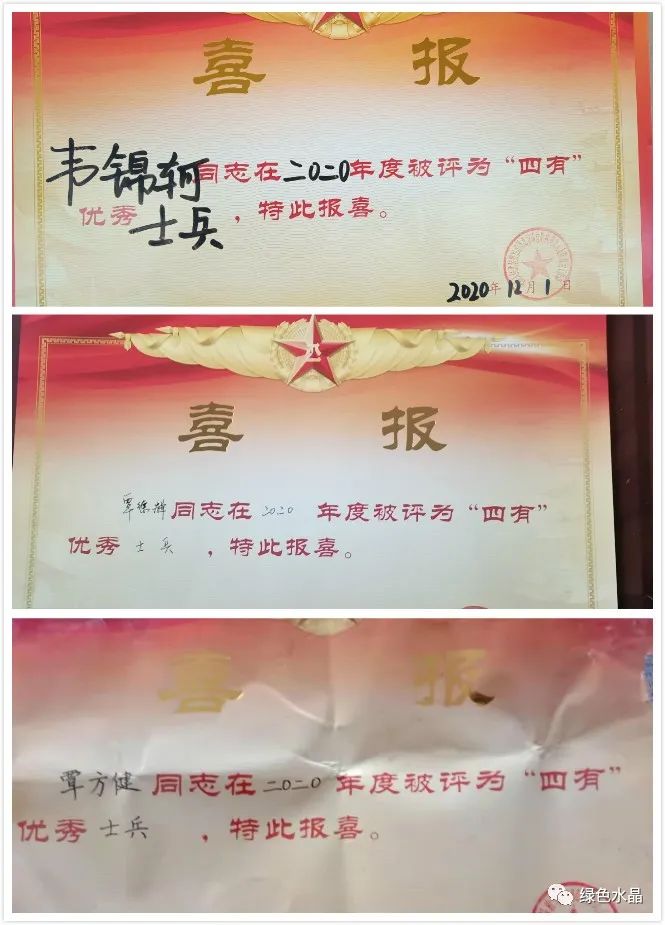 喜 报
韦锦轲同志在二〇二〇年度被评为“四有”
优秀士兵，特此报喜。
2020年12月1日
喜 报
覃徐辉同志在2020年度被评为“四有”
优秀士兵，特此报喜。
喜 报
覃方健同志在二〇二〇年度被评为“四有”
优秀士兵，特此报喜。
绿色水晶